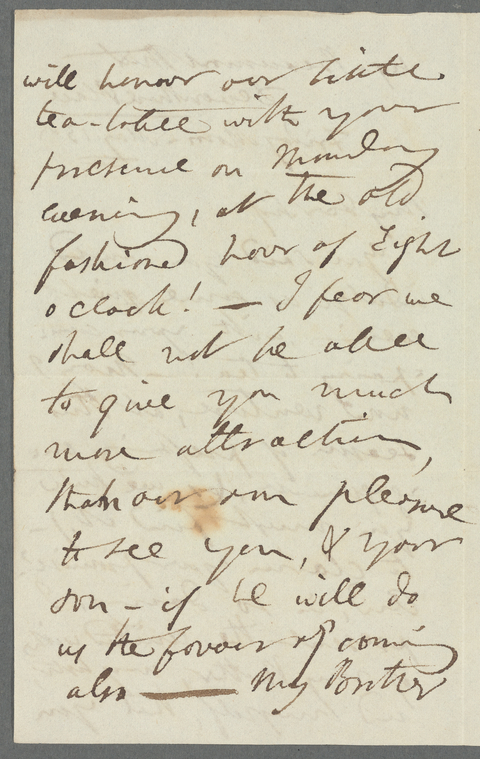 will honour our little
tea-table with your
presence on Monday
evening, at the old
fashioned hour of Eight
o'clock! — I fear we
shall not be able
to give you much
more attraction,
than our own pleasure
to see you, & your
son – if he will do
us the favour of coming
also — My Brother